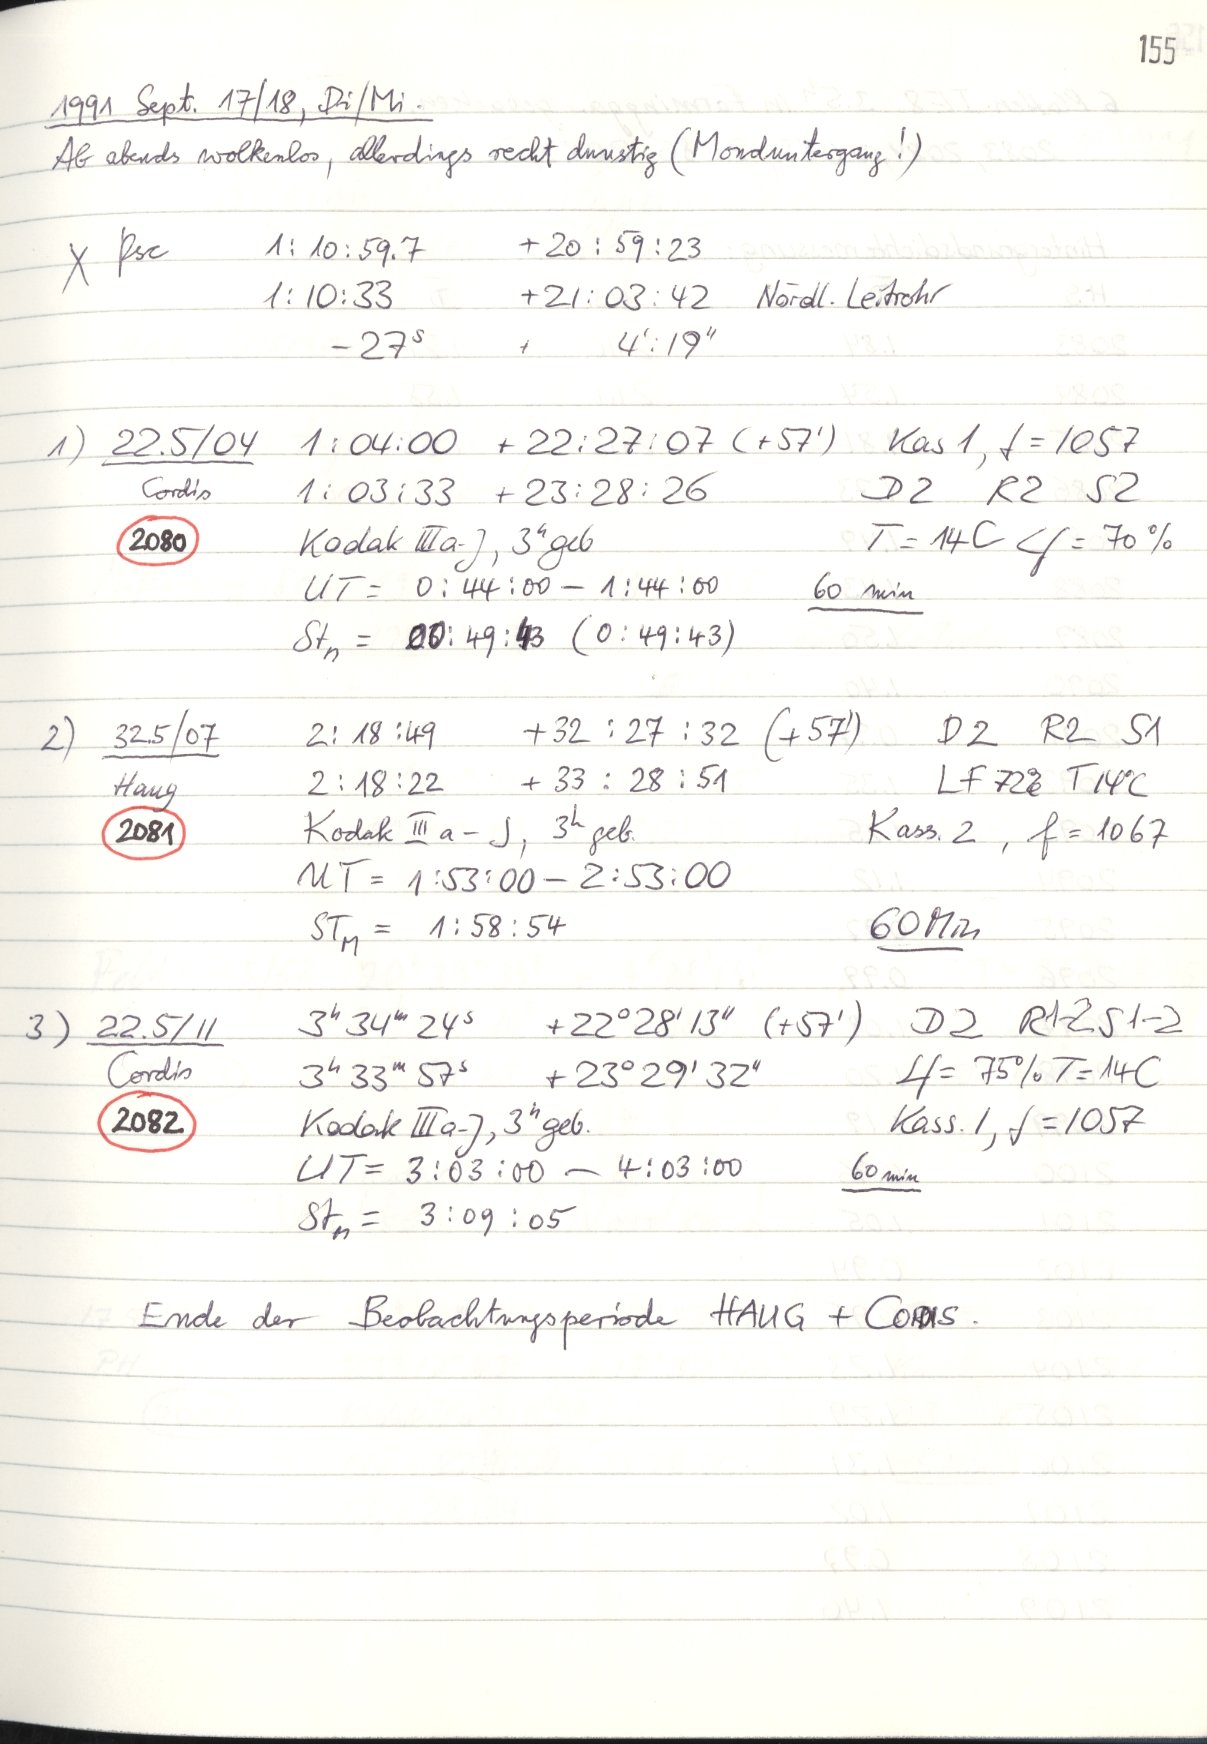 155
1991 Sept. 17/18, Di/Mi.
Ab abends wolkenlos, allerdings recht dunstig (Monduntergang!)
χ Psc 1:10:59.7 +20:59:23
1:10:33 +21:03:42 Nördl. Leitrohr
-27ˢ + 4':19"
1) 22.5/04 1:04:00 +22:27:07 (+57') Kas 1, f=1057
Cordis 1:03:33 +23:28:26 D2 R2 S2
2080 Kodak IIIa-J, 3ʰ geb T=14C Lf=70%
UT= 0:44:00 - 1:44:00 60 min
Stₘ = 00:49:43 (0:49:43)
2) 32.5/07 2:18:49 +32:27:32 (+57') D2 R2 S1
Haug 2:18:22 +33:28:51 LF 72% T 14°C
2081 Kodak IIIa-J, 3ʰ geb. Kass. 2, f=1067
UT= 1:53:00 - 2:53:00
STM = 1:58:54 60 Min
3) 22.5/11 3ʰ 34ᵐ 24ˢ +22° 28' 13" (+57') D2 R1-2 S1-2
Cordis 3ʰ 33ᵐ 57ˢ +23° 29' 32" Lf= 75% T=14C
2082 Kodak IIIa-J, 3ʰ geb. Kass. 1, f=1057
UT= 3:03:00 - 4:03:00 60 min
Stₘ = 3:09:05
Ende der Beobachtungsperiode HAUG + CORDIS.